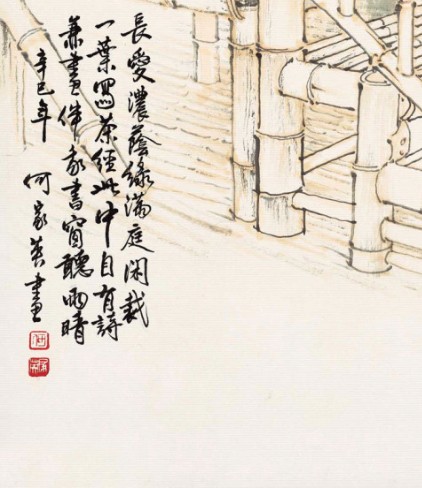 長愛濃蔭綠滿庭閑裁
一葉寫茶經此中自有詩
兼畫伴我書窗聽雨晴
辛巳年 何家英畫